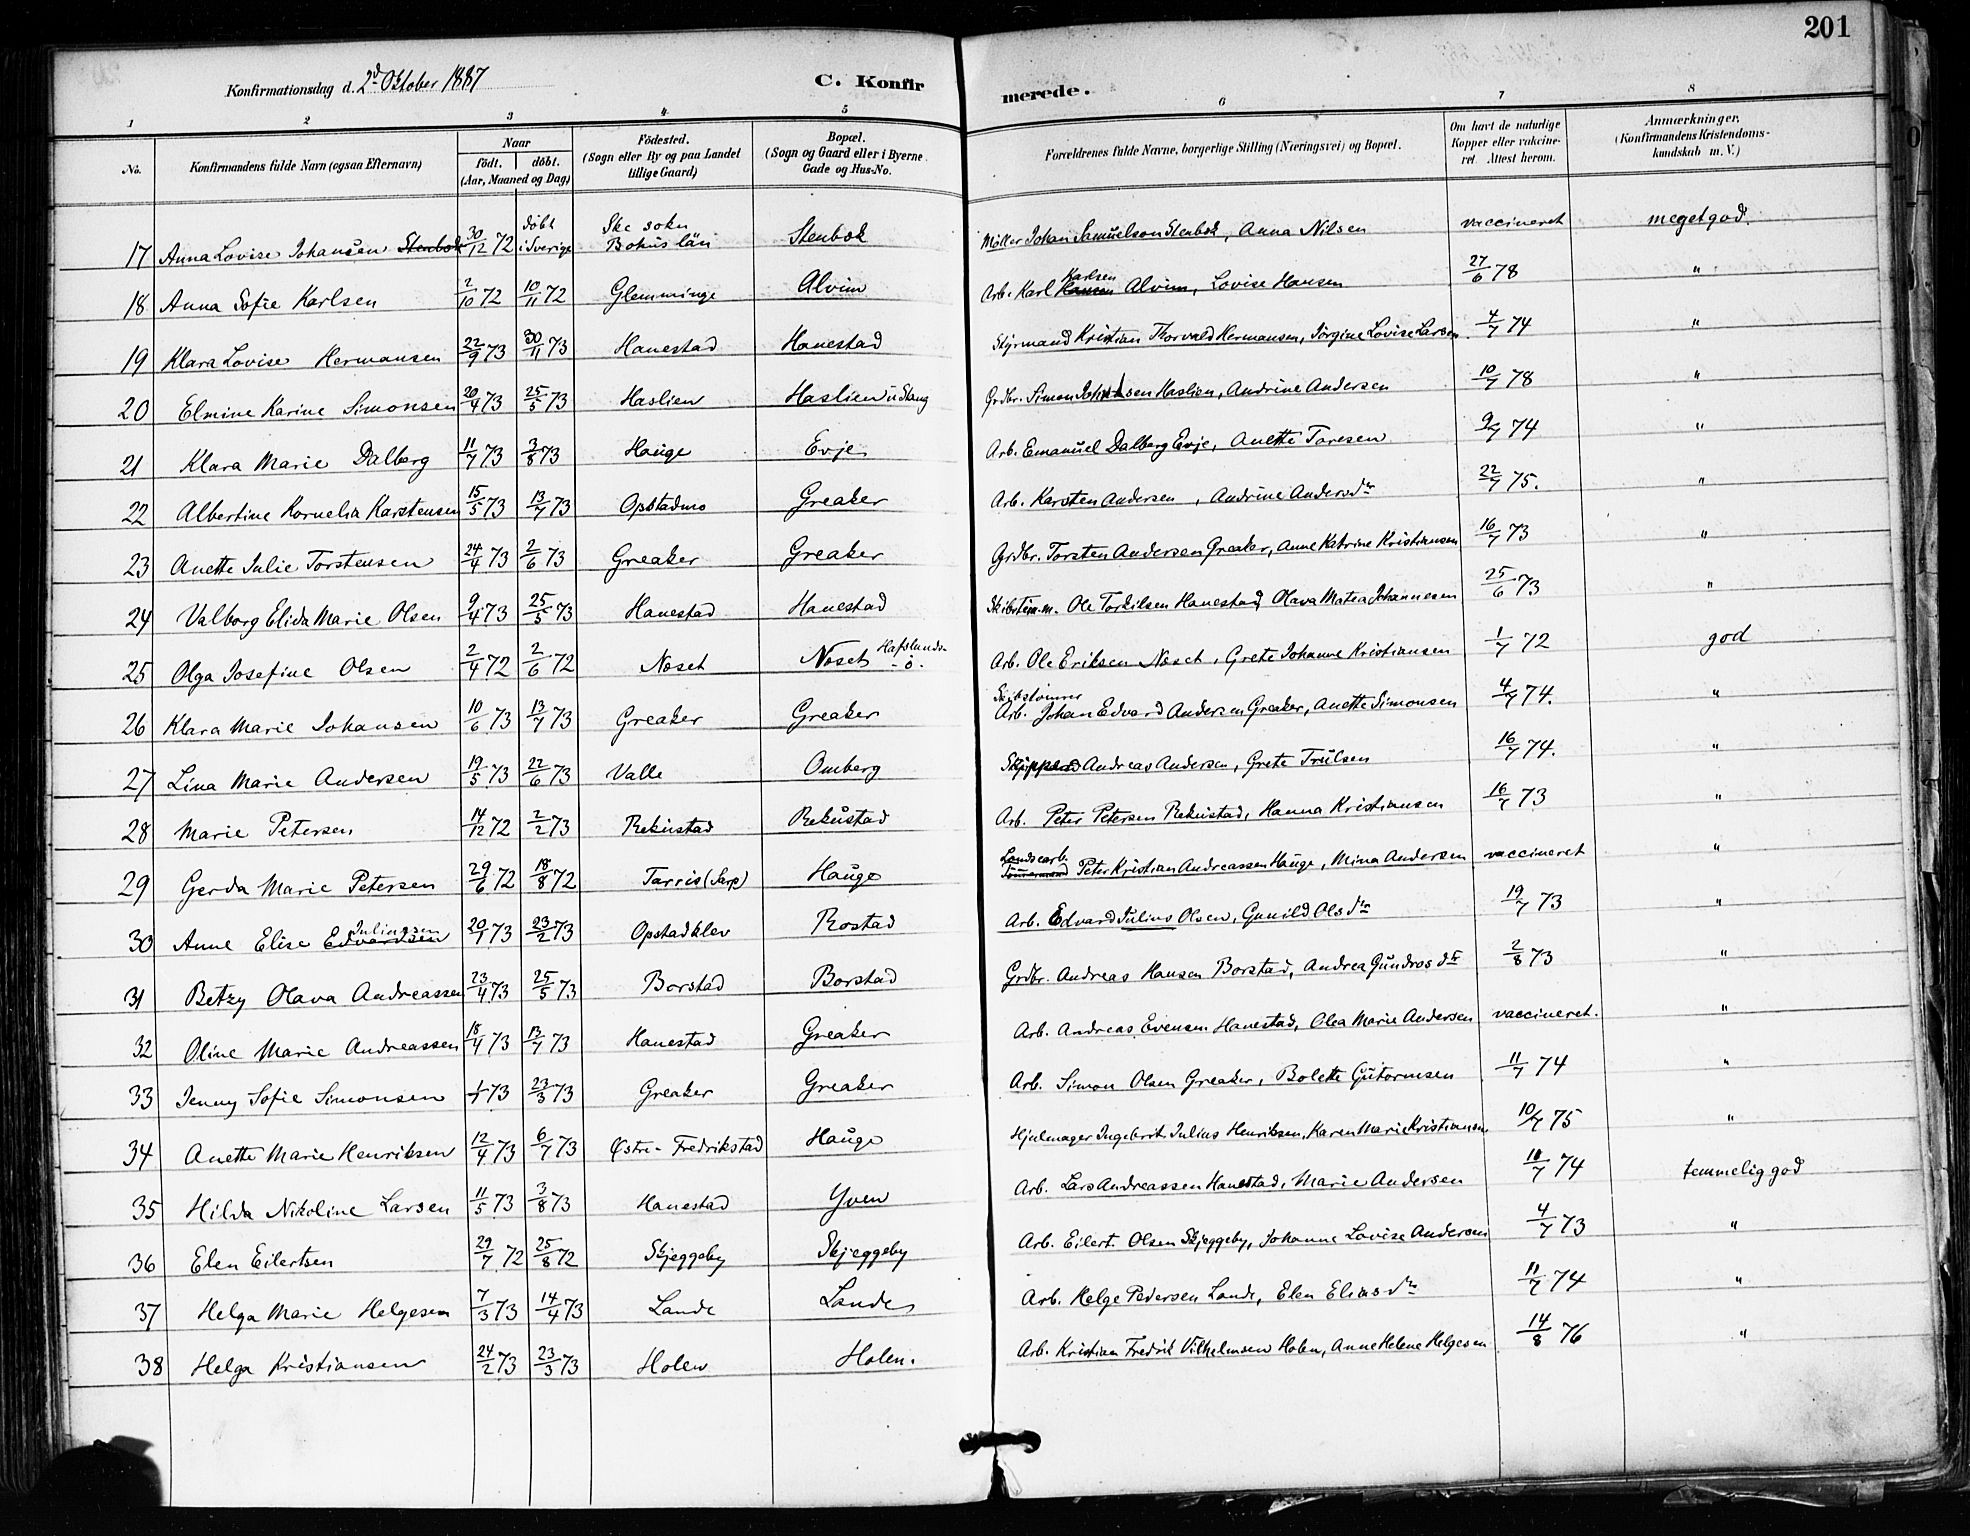 201
Konfirmationsdag d. 2d Oktober 1887 C. Konfirmerede.
1 2 3 4 5 6 7 8
No. Konfirmandens fulde Navn (ogsaa Efternavn) Naar födt. döbt. (Aar, Maaned og Dag) Födested. (Sogn eller By og paa Landet tillige Gaard) Bopæl. (Sogn og Gaard eller i Byerne Gade og Hus-No. Forældrenes fulde Navne, borgerlige Stilling (Næringsvei) og Bopæl. Om havt de naturlige Kopper eller vakcineret. Attest herom. Anmærkninger. (Konfirmandens Kristendomskundskab m. V.)
17 Anna Lovise Johansen Stenbok 30/12 72 döbt i Sverige Ske sokn Bohus län Stenbok Møller Johan Samuelson Stenbok, Anna Nilsen vaccineret meget god.
18 Anna Sofie Karlsen 2/10 72 10/11 72 Glemminge Alvim Arb. Karl Hansen Karlsen Alvim, Lovise Hansen 27/6 78 "
19 Klara Lovise Hermansen 22/9 73 30/11 73 Hanestad Hanestad Styrmand Kristian Thorvald Hermansen, Jörgine Lovise Larsen 4/7 74 "
20 Elmine Karine Simonsen 20/4 73 25/5 73 Haslien Haslien u Stang Grdbr. Simon Johansen Haslien, Andrine Andersen 10/7 78 "
21 Klara Marie Dalberg 11/7 73 3/8 73 Hauge Evje Arb. Emanuel Dalberg Evje, Anette Taresen 9/7 74 "
22 Albertine Kornelia Karstensen 15/5 73 13/7 73 Opstadmo Greaker Arb. Karsten Andersen, Andrine Andersdr 22/7 75. "
23 Anette Julie Torstensen 24/4 73 2/6 73 Greaker Greaker Grdbr. Torsten Andersen Greaker, Anne Katrine Kristiansen 16/7 73 "
24 Valborg Elida Marie Olsen 9/4 73 25/5 73 Hanestad Hanestad Skibstöm.m. Ole Torkilsen Hanestad, Olava Matea Johannesen 25/6 73 "
25 Olga Josefine Olsen 2/4 72 2/6 72 Neset Neset Hafslunds-ö. Arb. Ole Eriksen Neset, Grete Johanne Kristiansen 1/7 72 god
26 Klara Marie Johansen 10/6 73 13/7 73 Greaker Greaker Skibstömrer Arb. Johan Edvard Andersen Greaker, Anette Simonsen 4/7 74. "
27 Lina Marie Andersen 19/5 73 22/6 73 Valle Omberg Skipper Andreas Andersen, Grete Trulsen 16/7 74. "
28 Marie Petersen 14/12 72 2/2 73 Rekustad Rekustad Arb. Peter Petersen Rekustad, Hanna Kristiansen 16/7 73 "
29 Gerda Marie Petersen 29/6 72 18/8 72 Tarris (Sarp) Hauge Landsearb. Tömmermand Peter Kristian Andreassen Hauge, Mina Andersen vaccineret "
30 Anne Elise Edvardsen Juliussen 20/1 73 23/2 73 Opstadklev Rostad Arb. Edvard Julius Olsen, Gunild Olsdtr 19/7 73 "
31 Betzy Olava Andreassen 23/4 73 25/5 73 Borstad Borstad Grdbr. Andreas Hansen Borstad, Andrea Gundrosdtr 2/8 73 "
32 Oline Marie Andreassen 18/4 73 13/7 73 Hanestad Greaker Arb. Andreas Evensen Hanestad, Olea Marie Andersen vaccineret. "
33 Jenny Sofie Simonsen 1/1 73 23/3 73 Greaker Greaker Arb. Simon Olsen Greaker, Bolette Gutormsen 11/7 74 "
34 Anette Marie Henriksen 12/4 73 6/7 73 Østre-Fredrikstad Hauge Hjulmager Ingebrit Julius Henriksen, Karen Marie Kristiansen 10/7 75 "
35 Hilda Nikoline Larsen 11/5 73 3/8 73 Hanestad Yven Arb. Lars Andreassen Hanestad, Marie Andersen 11/7 74 temmelig god
36 Elen Eilertsen 29/7 72 25/8 72 Skjeggeby Skjeggeby Arb. Eilert Olsen Skjeggeby, Johanne Lovise Andersen 4/7 73 "
37 Helga Marie Helgesen 7/3 73 14/4 73 Lande Lande Arb. Helge Pedersen Lande, Elen Eliasdr 11/7 74 "
38 Helga Kristiansen 24/2 73 23/3 73 Holen Holen. Arb. Kristian Fredrik Vilhelmsen Holen, Anne Helene Helgesen 14/8 76 "